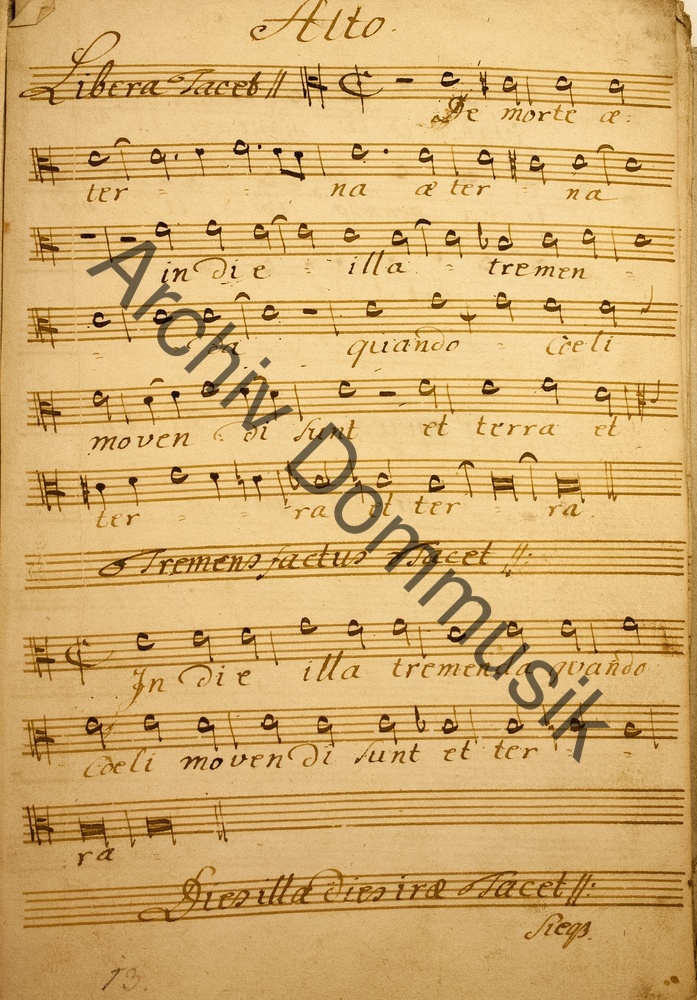 Alto.
Libera Tacet //
De morte æ:
ter - - - na æter - na
in die - illa - tremen -
- - da quando - Cœli
moven - di sunt et terra et
ter - - - ra et ter - ra.
Tremens factus Tacet //:
In die illa tremenda quando
Cœli movendi sunt et ter - -
ra
Dies illa dies iræ Tacet //:
13.
Archiv Dommusik